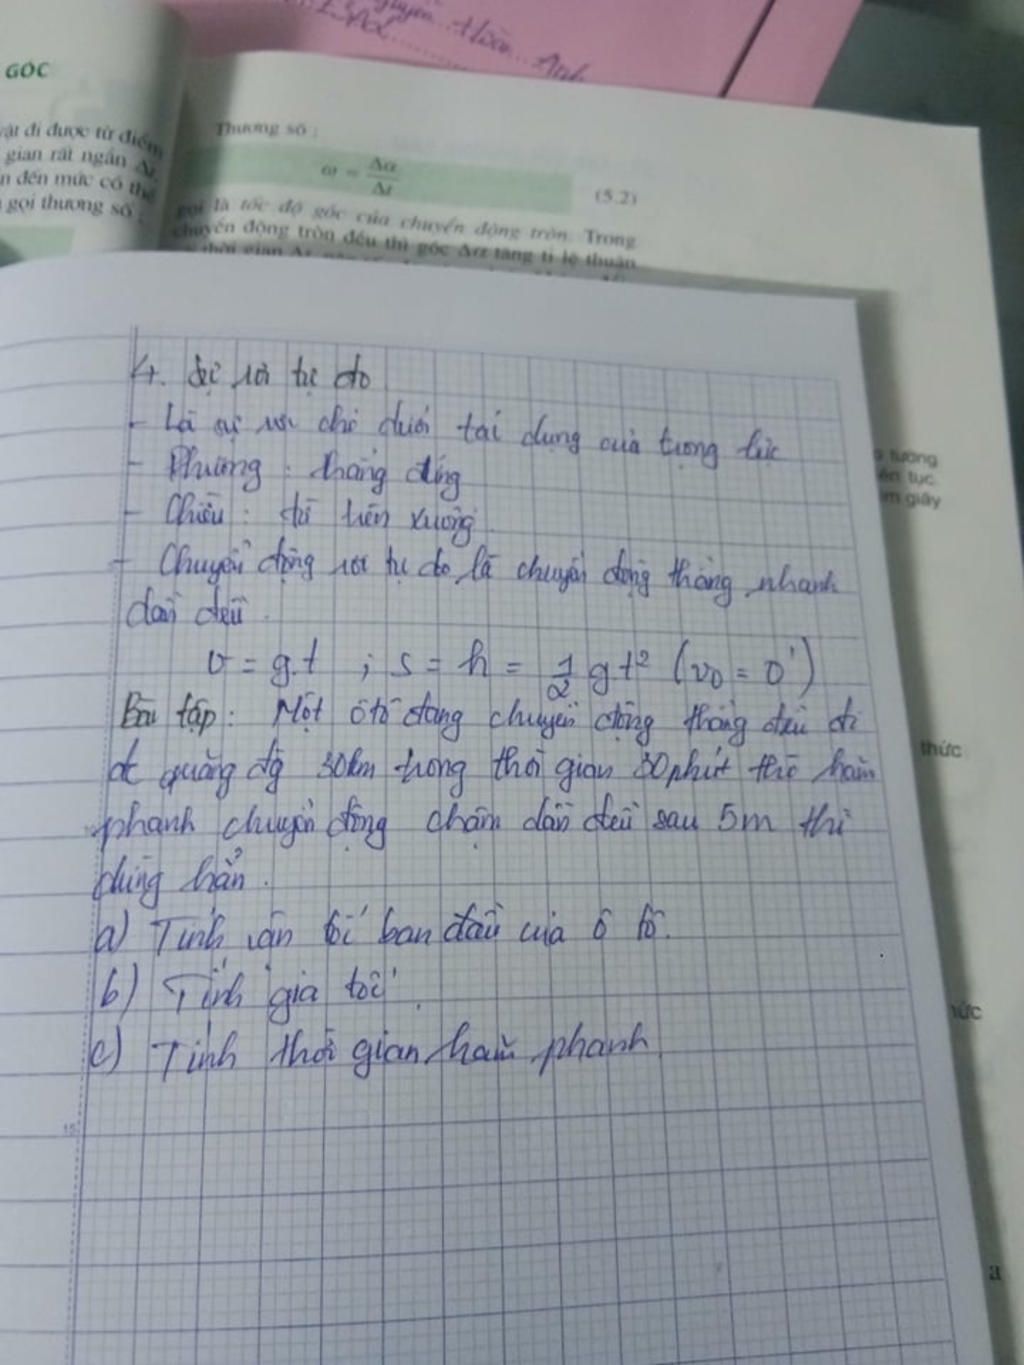 Nguyễn Hiền Anh
GÓC
vật đi được từ điểm
gian rất ngắn Δt
n đến mức có thể
gọi thương số :
Thương số :
ω = Δα/Δt (5.2)
gọi là tốc độ góc của chuyển động tròn. Trong
chuyển động tròn đều thì góc Δα tăng tỉ lệ thuận
thời gian Δt
4. Sự rơi tự do
- Là sự rơi chỉ dưới tác dụng của trọng lực
- Phương : thẳng đứng
- Chiều : từ trên xuống
- Chuyển động rơi tự do là chuyển động thẳng nhanh
dần đều.
v = g.t ; s = h = 1/2 gt² (v0 = 0)
Bài tập : Một ôtô đang chuyển động thẳng đều đi
đc quãng đg 30km trong thời gian 30phút thì hãm
phanh chuyển động chậm dần đều sau 5m thì
dừng hẳn.
a) Tính vận tốc ban đầu của ô tô.
b) Tính gia tốc.
c) Tính thời gian hãm phanh
tương
ên tục.
im giây
thức
15